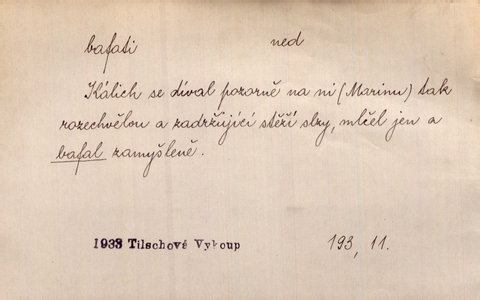 bafati ned
Kálich se díval pozorně na ni (Marinu) tak
rozechvělou a zadržující stěží slzy, mlčel jen a
bafal zamyšleně.
1933 Tilschové Vykoup 193, 11.